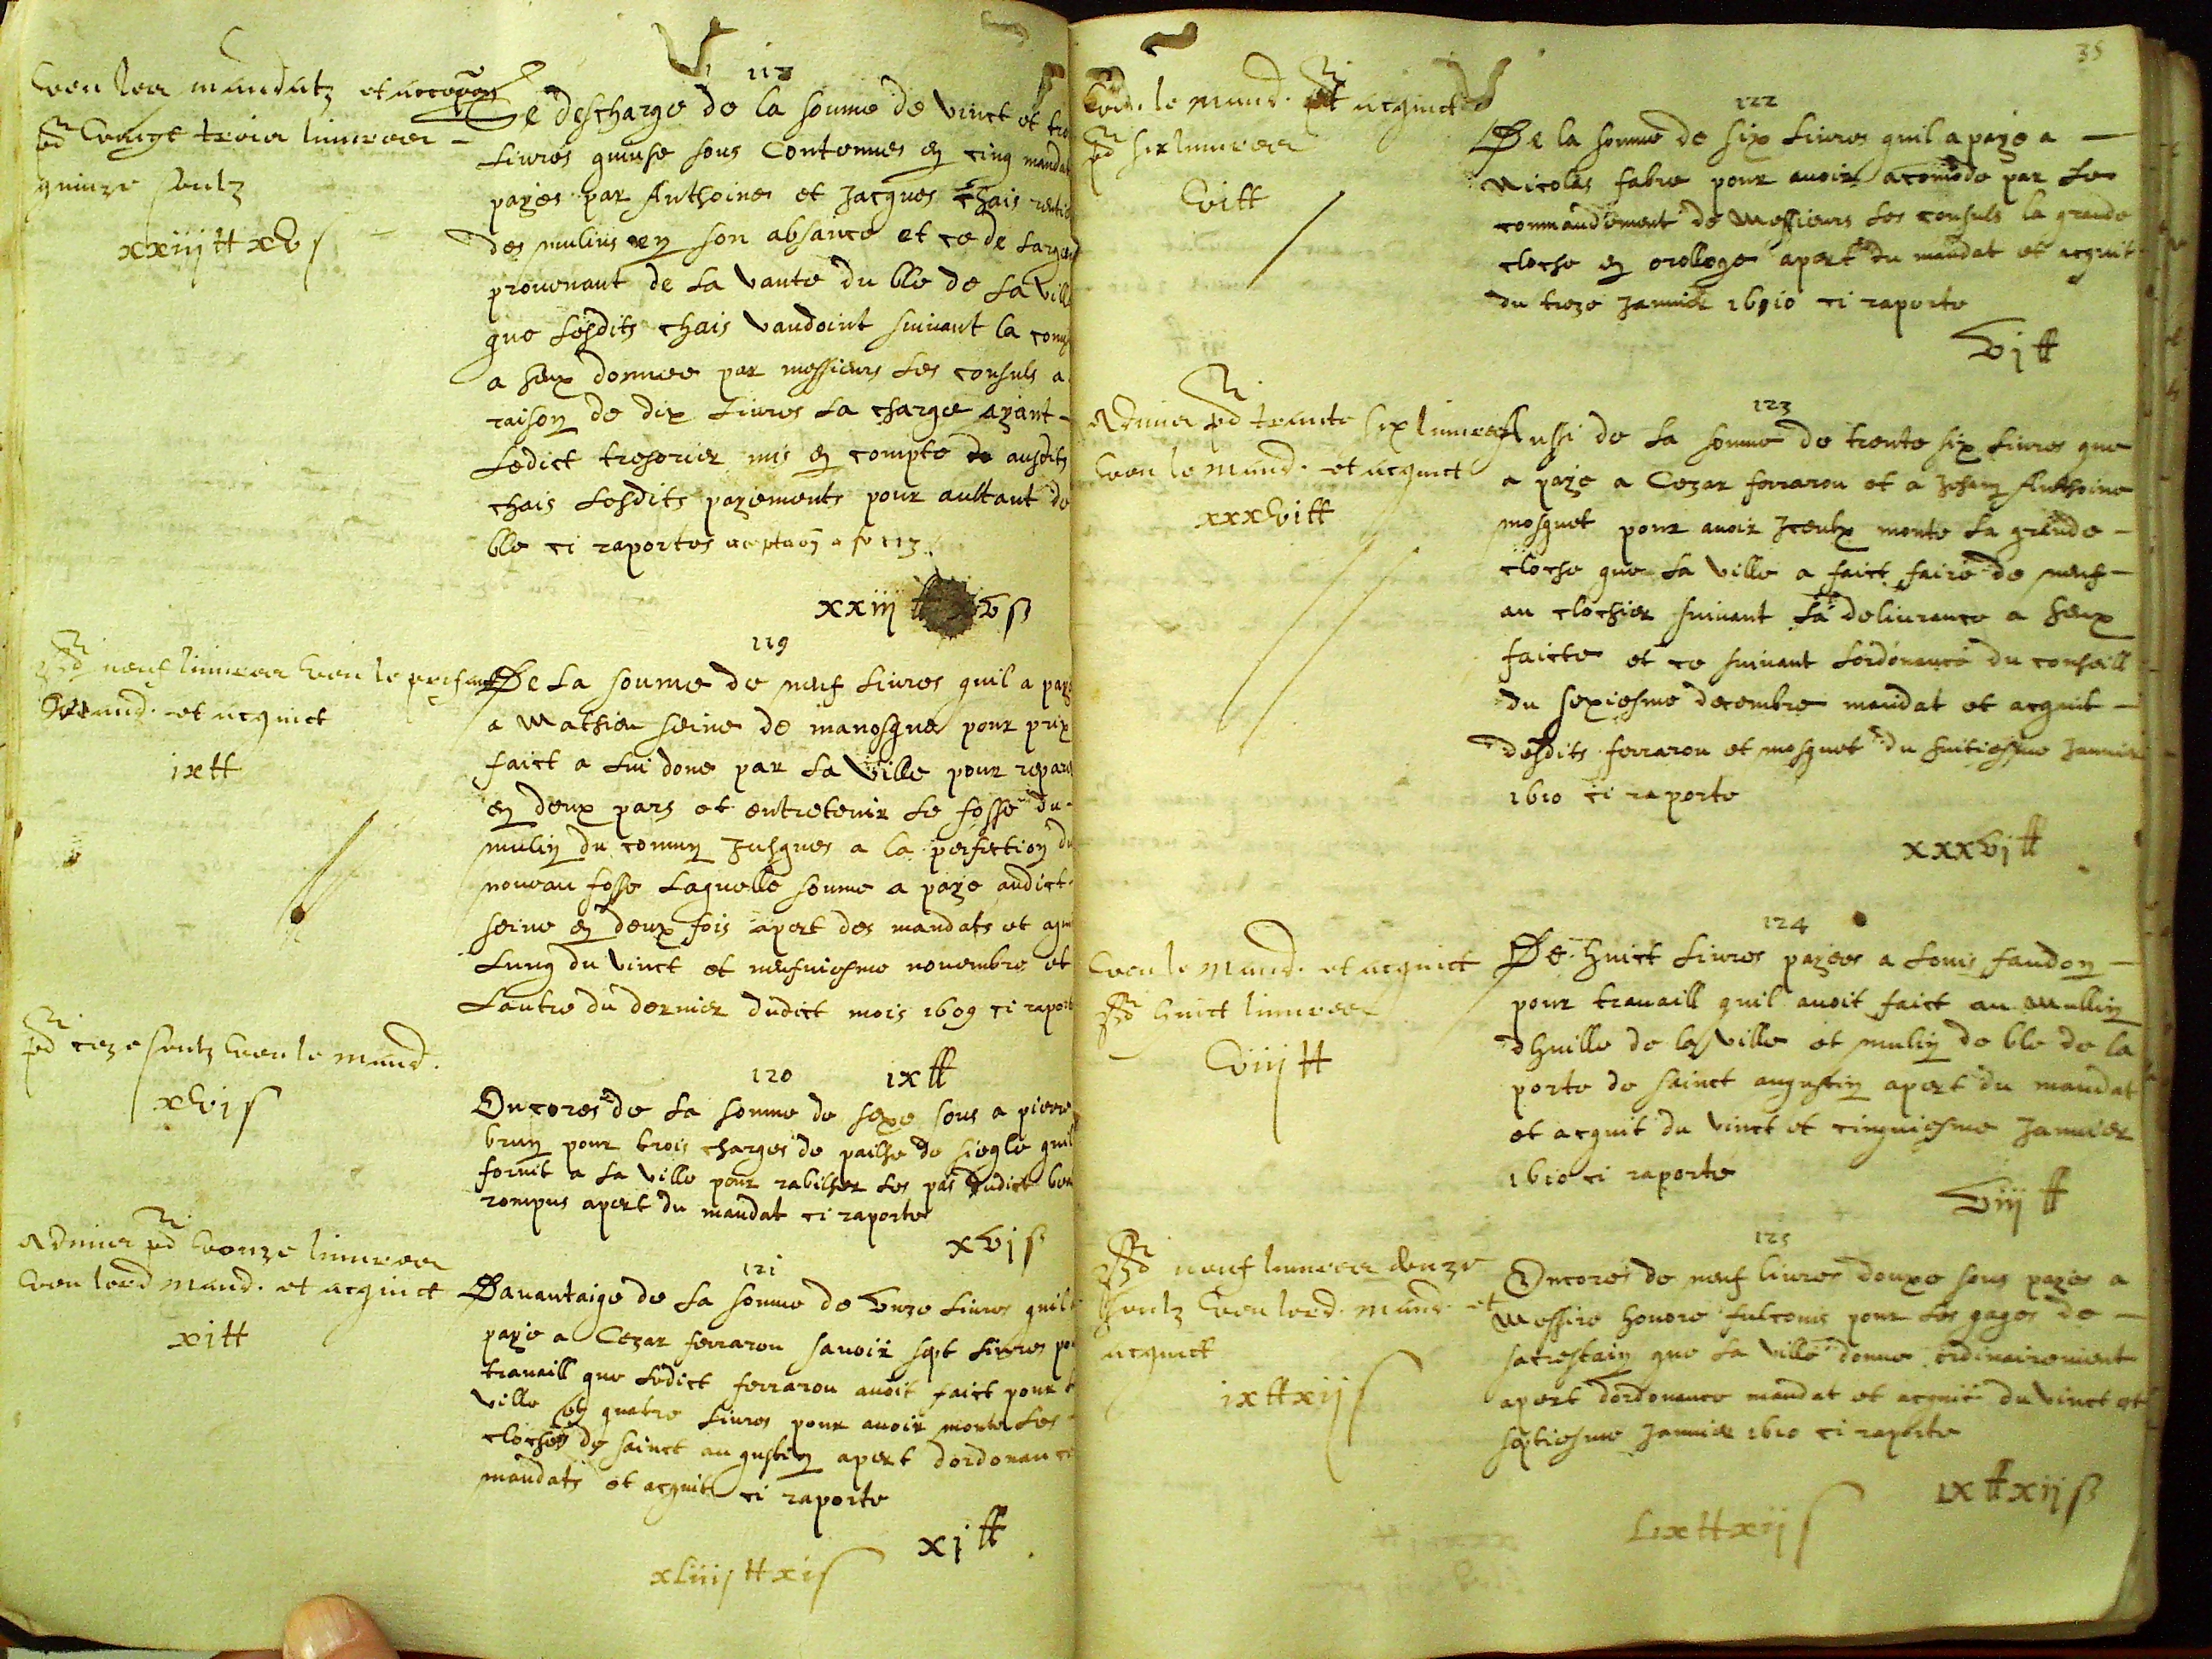 veu les mandatz et
vingt trois livres
quinze soulz
xxiij ₶ xv s
118
Se descharge de la somme de vinct et tro
Livres quinse sous Contenues en cinq mandat
payes par Anthoine et Jacques Chais rentie
des mulins en son absance et ce de Largen
prouenant de La vante du ble de La ville
que Lesdits chais vandoint suiuant la com
a heux donnee par messieurs Les consuls a
raison de dix Liures La charge ayant
Ledict tresorier mis en compte ausdits
chais Lesdits payements pour aultant de
ble ci raportes
xxiij ₶ xv s
neuf livres veu le present
mand. et acquict
ix ₶
119
De La soume de neuf Liures quil a paye
a Mathieu seine de manosque pour prix
faict a Lui done par La ville pour repare
en deux pars et entretenir Le fosse du
mulin du comun Jusques a la perfection du
nouueau fosse Laquelle soume a paye audict
seine en deux fois apert des mandats et
Lung du vinct et nufuiesme nouembre et
Lautre du dernier dudict mois 1609 ci raport
ix ₶
seze soulz veu le mand.
xvj s
120
Encores de La somme de seze sous a piere
brun pour trois charges de pailhe de siegle quil
fornit a La ville pour rabilher Les pas dudict
rompus apert du mandat ci raporte
xvj s
Admis vonze livres
veu lesd mand. et acquict
xi ₶
121
Dauantaige de La somme de vnze Liures quil
paye a Cezar ferrarou sauoir sept Liures po
trauaill que Ledict ferrarou auoit faict pour
ville et quatre Liures pour auoir monte Les
cloches de sainct augustin apert dordonance
mandats et acquit ci raporte
xj ₶
xLiiij ₶ xi s
35
veu le mand. et acquict
six livres
vi ₶
122
De la somme de six Liures quil a paye a
Nicolas fabre pour auoir acomode par Le
commandement de Messieurs Les consuls la grande
cloche en orologe apert du mandat et acquit
du treze Januier 1610 ci raporte
vj ₶
Admis trante six livres
veu le mand. et acquict
xxxvi ₶
123
Aussi de La somme de trente six Liures que
a paye a Cezar ferrarou et a Jehan Anthoine
mosquet pour auoir Iceulx monte La grande
cloche que La ville a faict faire de neuf
au clochier suiuant La deliurance a heux
faicte et ce suiuant Lordonance du conseill
du sexiesme decembre mandat et acquit
desdits ferrarou et mosquet du huitiesme Januier
1610 ci raporte
xxxvj ₶
veu le mand. et acquict
huict livres
viij ₶
124
De huict Liures payees a Louis faudon
pour trauaill quil auoit faict au Mullin
dhuille de la ville et mulin de ble de la
porte de sainct augustin apert du mandat
et acquit du vinct et cinquiesme Januier
1610 ci raporte
viij ₶
neuf livres douze
soulz veu lesd. mand. et
acquict
ix ₶ xij s
125
Encores de neuf liures douxe sous payes a
Messire honore fulconis pour Les gages de
sacrestain que La ville donne ordinairement
apert dordonance mandat et acquit du vinct et
septiesme Januier 1610 ci raporte
ix ₶ xij s
Lix ₶ xij s